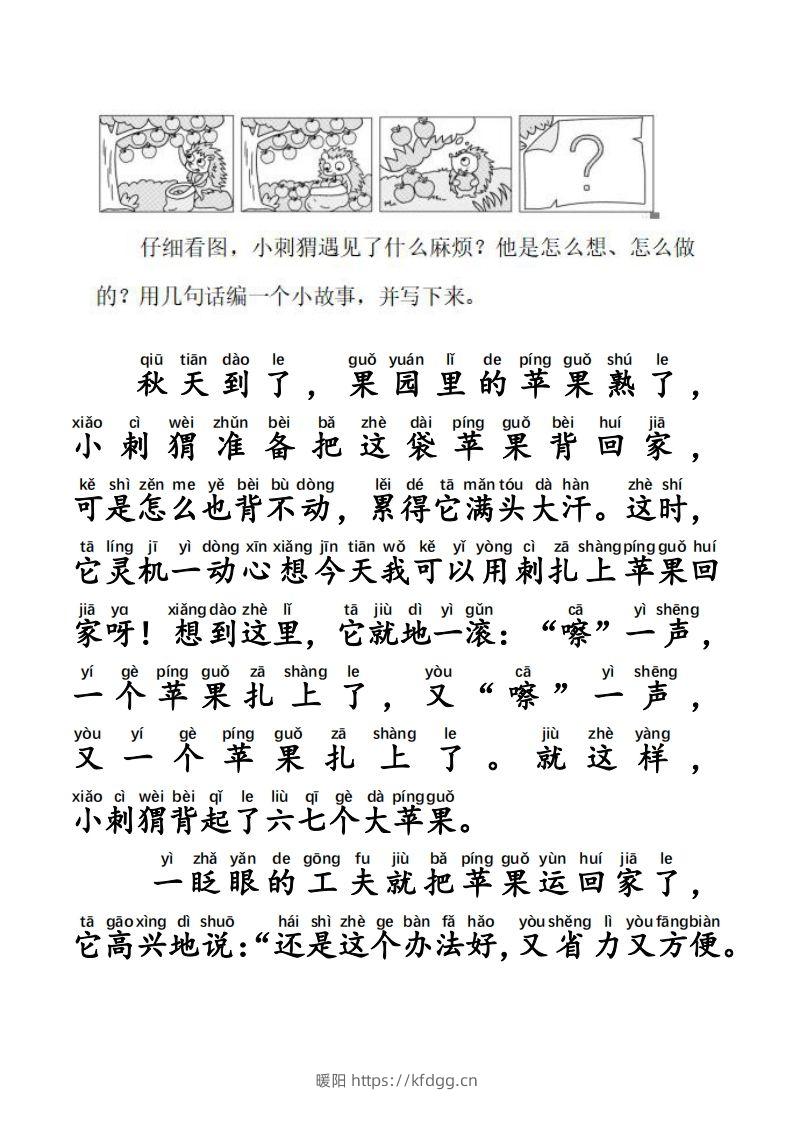 ?
仔细看图，小刺猬遇见了什么麻烦？他是怎么想、怎么做
的？用几句话编一个小故事，并写下来。
qiū tiān dào le guǒ yuán lǐ de píng guǒ shú le
秋天到了，果园里的苹果熟了，
xiǎo cì wèi zhǔn bèi bǎ zhè dài píng guǒ bèi huí jiā
小刺猬准备把这袋苹果背回家，
kě shì zěn me yě bèi bù dòng lěi dé tā mǎn tóu dà hàn zhè shí
可是怎么也背不动，累得它满头大汗。这时，
tā líng jī yì dòng xīn xiǎng jīn tiān wǒ kě yǐ yòng cì zā shàng píng guǒ huí
它灵机一动心想今天我可以用刺扎上苹果回
jiā ya xiǎng dào zhè lǐ tā jiù dì yì gǔn cā yì shēng
家呀！想到这里，它就地一滚：“嚓”一声，
yí gè píng guǒ zā shàng le yòu cā yì shēng
一个苹果扎上了，又“嚓”一声，
yòu yí gè píng guǒ zā shàng le jiù zhè yàng
又一个苹果扎上了。就这样，
xiǎo cì wèi bèi qǐ le liù qī gè dà píng guǒ
小刺猬背起了六七个大苹果。
yì zhǎ yǎn de gōng fu jiù bǎ píng guǒ yùn huí jiā le
一眨眼的工夫就把苹果运回家了，
tā gāo xìng dì shuō hái shì zhè ge bàn fǎ hǎo yòu shěng lì yòu fāng biàn
它高兴地说：“还是这个办法好，又省力又方便。
暖阳 https://kfdgg.cn